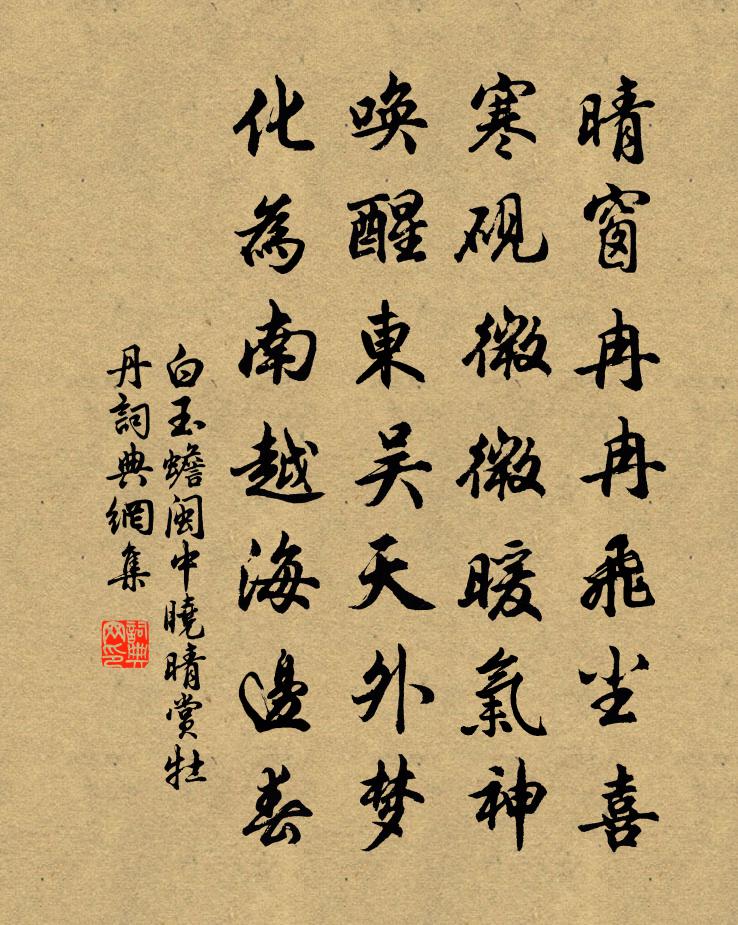 晴窗冉冉飛尘喜
寒硯微微暖氣神
唤醒東吴天外梦
化為南越海邊春
白玉蟾閩中曉晴賞牡
丹詞典網集
詞典
网印